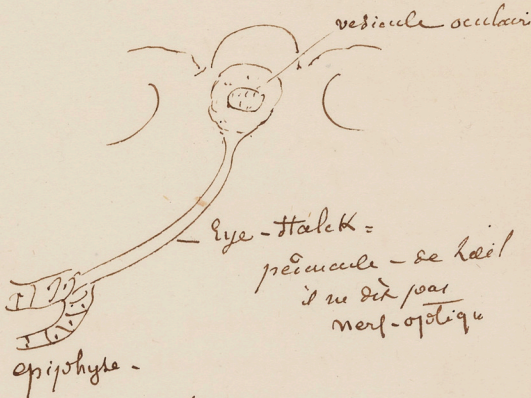 vesicule oculair
Eye-Stalck =
pédicule - de l'œil
il ne dit pas
nerf-optiqu
epiphyse -